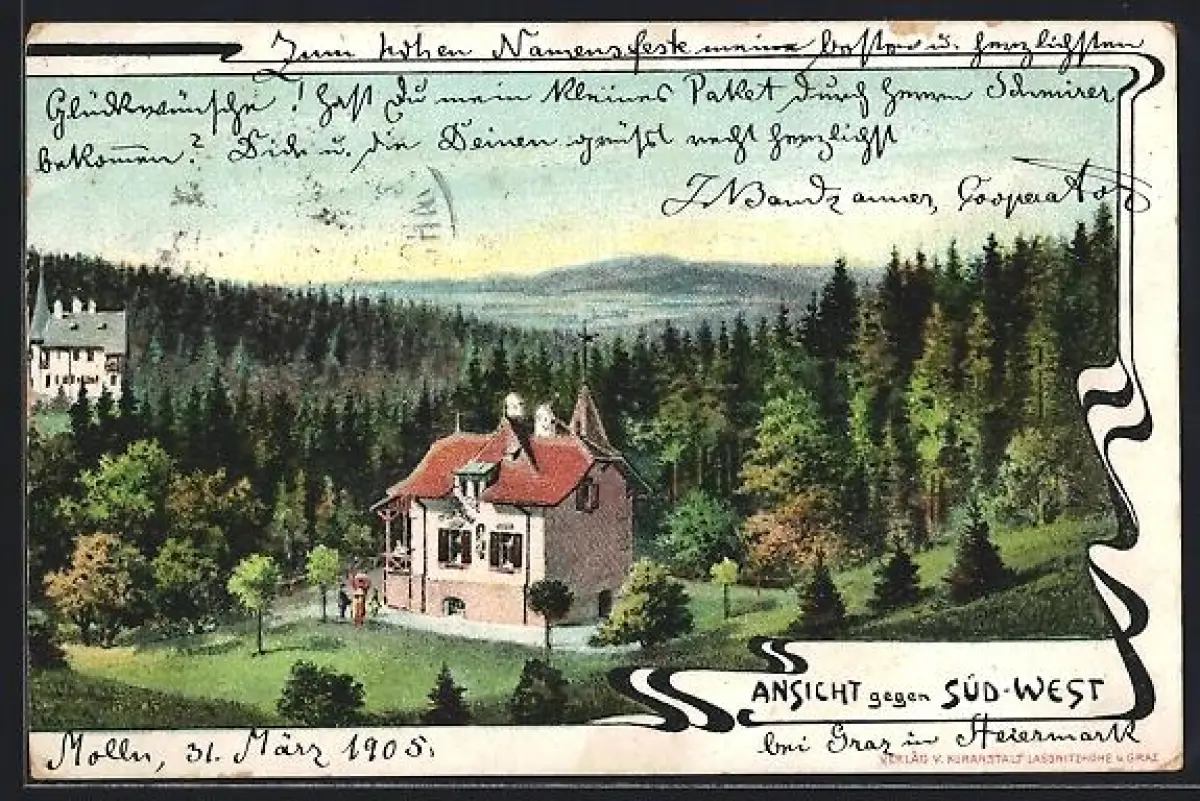 Zum hohen Namensfeste meine besten u. herzlichsten
Glückwünsche! Hast Du mein kleines Paket durch Herrn Schmirer
bekommen? Dich u. die Deinen grüßt recht herzlichst
Cooperator
ANSICHT gegen SÜD-WEST
Molln, 31. März 1905.
bei Graz in Steiermark
VERLAG V. KURANSTALT LASSNITZHÖHE b. GRAZ